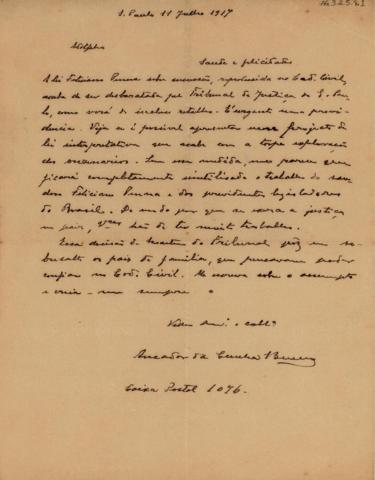 S. Paulo 11 Julho 1917
Adolpho
Saude e felicidades
A lei Feliciano Penna sobre successão, reproduzida no Cod. Civil,
acaba de ser desbaratada pelo Tribunal de Justiça de S. Pau-
lo, como verá do incluso retalho. É urgente uma provi-
dencia. Veja se é possivel apresentar nesse projecto de
lei interpretativa que acabe com a torpe exploração
dos . Sem essa medida, me parece que
ficará completamente inutilizado o trabalho do sau-
doso Feliciano Penna e dos previdentes legisladores
do Brasil. Do modo por que se vai a justiça
no paiz, hão de ter muito trabalho.
Essa decisão do nosso Tribunal poz em so-
bresalto os pais de familia, que pensavam poder
confiar no Cod. Civil. Me escreva sobre o assumpto
e creia-me sempre
Velho am.º e coll.ª
Amador da Cunha Bueno
Caixa Postal 1076.